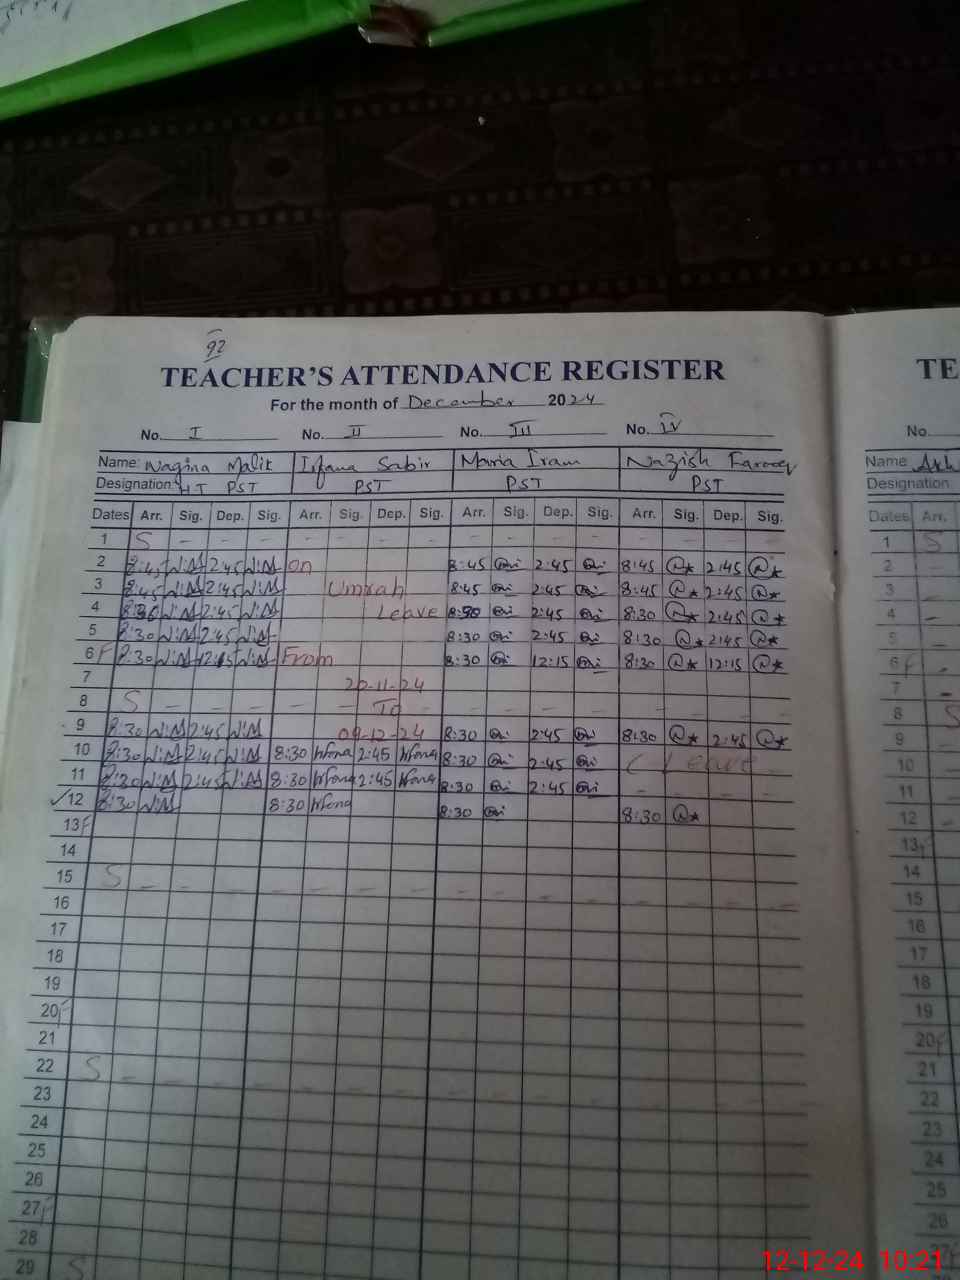 92
TEACHER'S ATTENDANCE REGISTER
For the month of December 2024
No. I No. II No. III No. IV
Name: Nagina Malik Irfana Sabir Maria Iram Nazish Farooq
Designation: HT PST PST PST PST
Dates Arr. Sig. Dep. Sig. Arr. Sig. Dep. Sig. Arr. Sig. Dep. Sig. Arr. Sig. Dep. Sig.
1 S - - - - - - - - - - - - - - -
2 8:45 2:45 on 8:45 2:45 8:45 2:45
3 8:45 2:45 Umrah 8:45 2:45 8:45 2:45
4 8:30 2:45 Leave 8:30 2:45 8:30 2:45
5 8:30 2:45 8:30 2:45 8:30 2:45
6 F 8:30 12:15 From 8:30 12:15 8:30 12:15
7 20-11-24
8 S - - - - - To - - - - - - - - -
9 8:30 2:45 09-12-24 8:30 2:45 8:30 2:45
10 8:30 2:45 8:30 Irfana 2:45 Irfana 8:30 2:45 C/Leave
11 8:30 2:45 8:30 Irfana 2:45 Irfana 8:30 2:45 - - - -
✓12 8:30 8:30 Irfana 8:30 8:30
13 F
14
15 S
16
17
18
19
20 F
21
22 S
23
24
25
26
27 F
28
29 S
TE
No.
Name
Designation:
Dates Arr.
1 S
2 -
3 -
4 -
5
6 F -
7 -
8 S
9 -
10 -
11 -
12 -
13 F
14
15
16
17
18
19
20 F
21
22
23
24
25
26
27
12-12-24 10:21